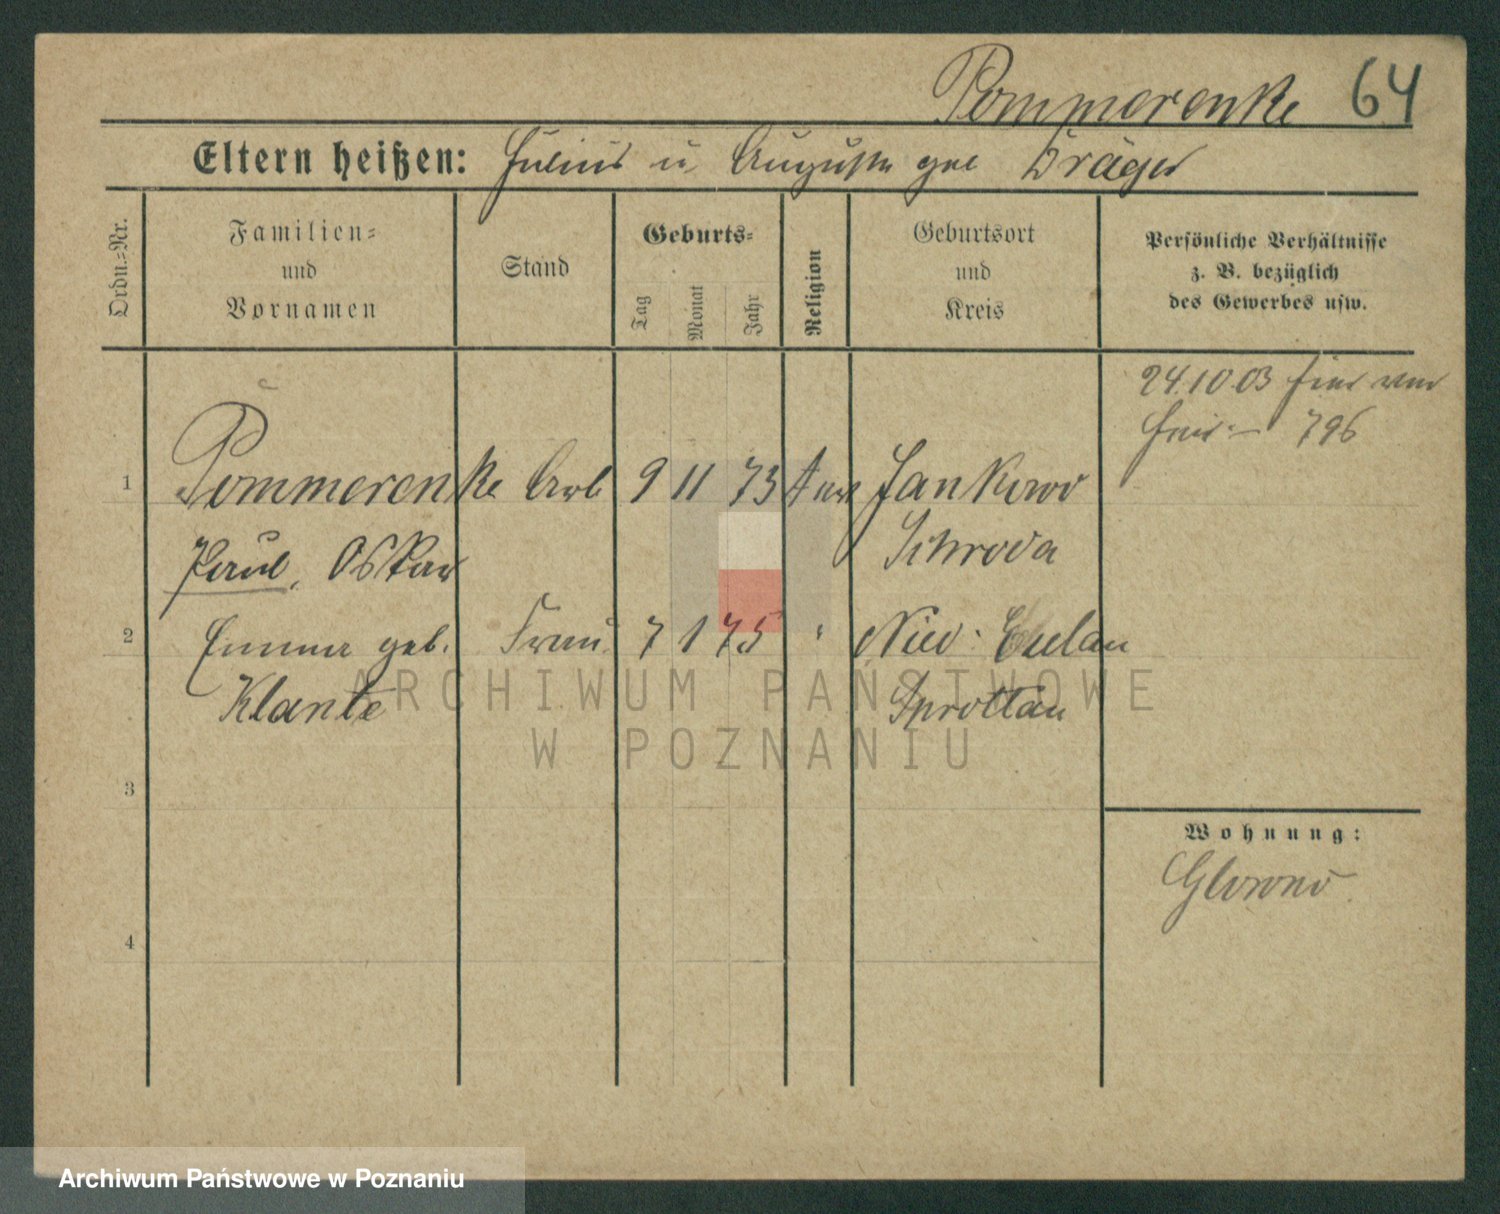 Pommerenke 64
Eltern heißen: Julius u Auguste geb Dräger
Ordn.-Nr.
Familien-
und
Vornamen
Stand
Geburts-
Tag
Monat
Jahr
Religion
Geburtsort
und
Kreis
Persönliche Verhältnisse
z. B. bezüglich
des Gewerbes usw.
24.10.03 hier
796
1 Pommerenke Arb 9 11 73 Jankowo
Paul, Oskar Schroda
2 Emma geb. Frau 7 1 75 "
Klante Sprottau
3
4
Wohnung:
Glowno
ARCHIWUM PAŃSTWOWE
W POZNANIU
Archiwum Państwowe w Poznaniu